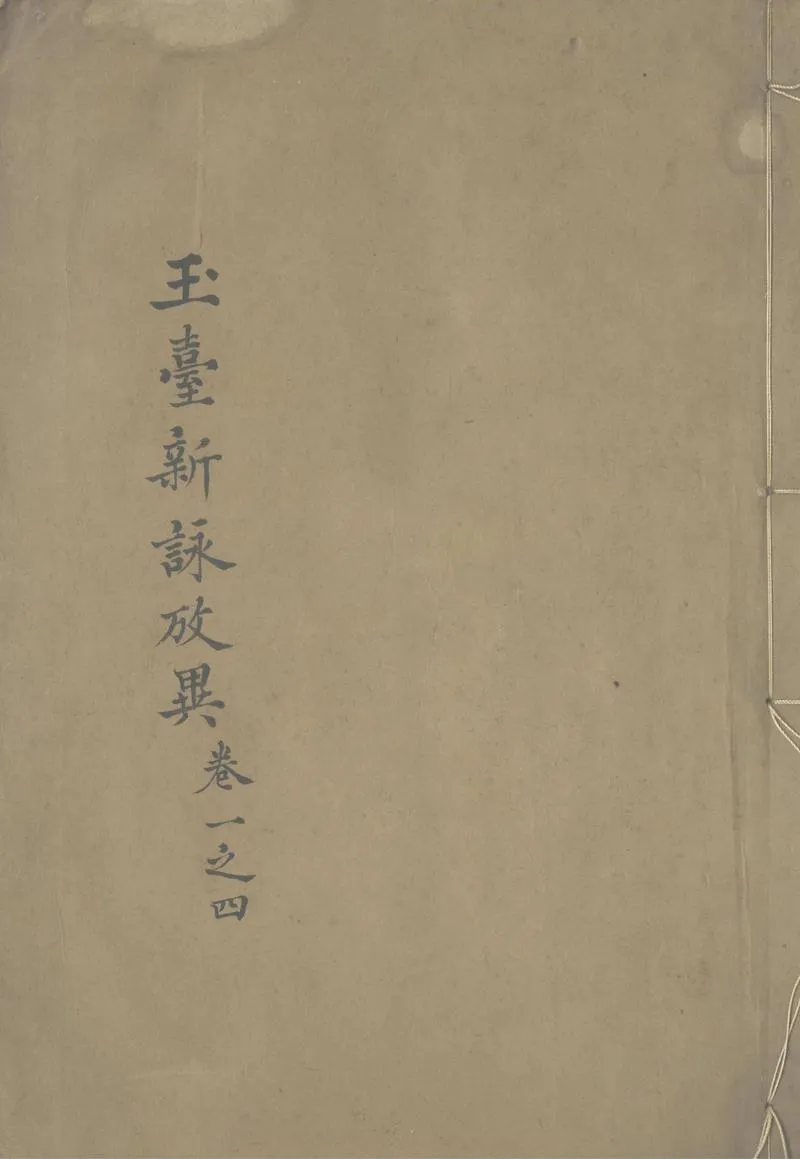 玉臺新詠攷異卷一之四